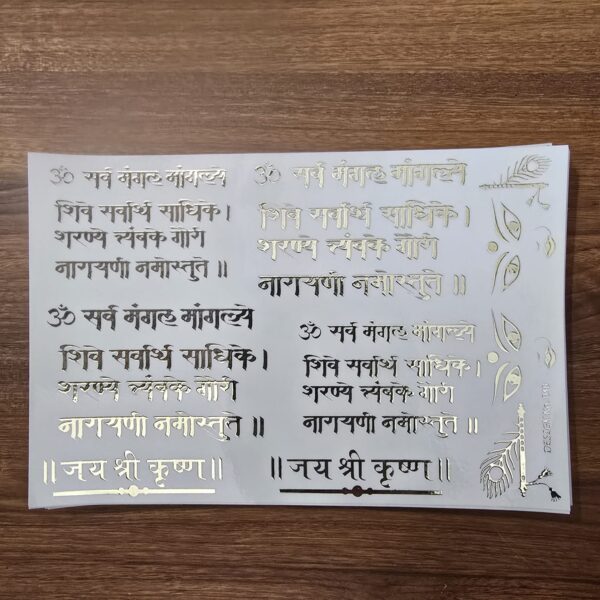 ॐ सर्व मंगल मांगल्ये
शिवे सर्वार्थ साधिके।
शरण्ये त्र्यंबके गौरी
नारायणी नमोस्तुते ॥
ॐ सर्व मंगल मांगल्ये
शिवे सर्वार्थ साधिके।
शरण्ये त्र्यंबके गौरी
नारायणी नमोस्तुते ॥
ॐ सर्व मंगल मांगल्ये
शिवे सर्वार्थ साधिके।
शरण्ये त्र्यंबके गौरी
नारायणी नमोस्तुते ॥
॥ जय श्री कृष्ण ॥
ॐ सर्व मंगल मांगल्ये
शिवे सर्वार्थ साधिके।
शरण्ये त्र्यंबके गौरी
नारायणी नमोस्तुते ॥
॥ जय श्री कृष्ण ॥